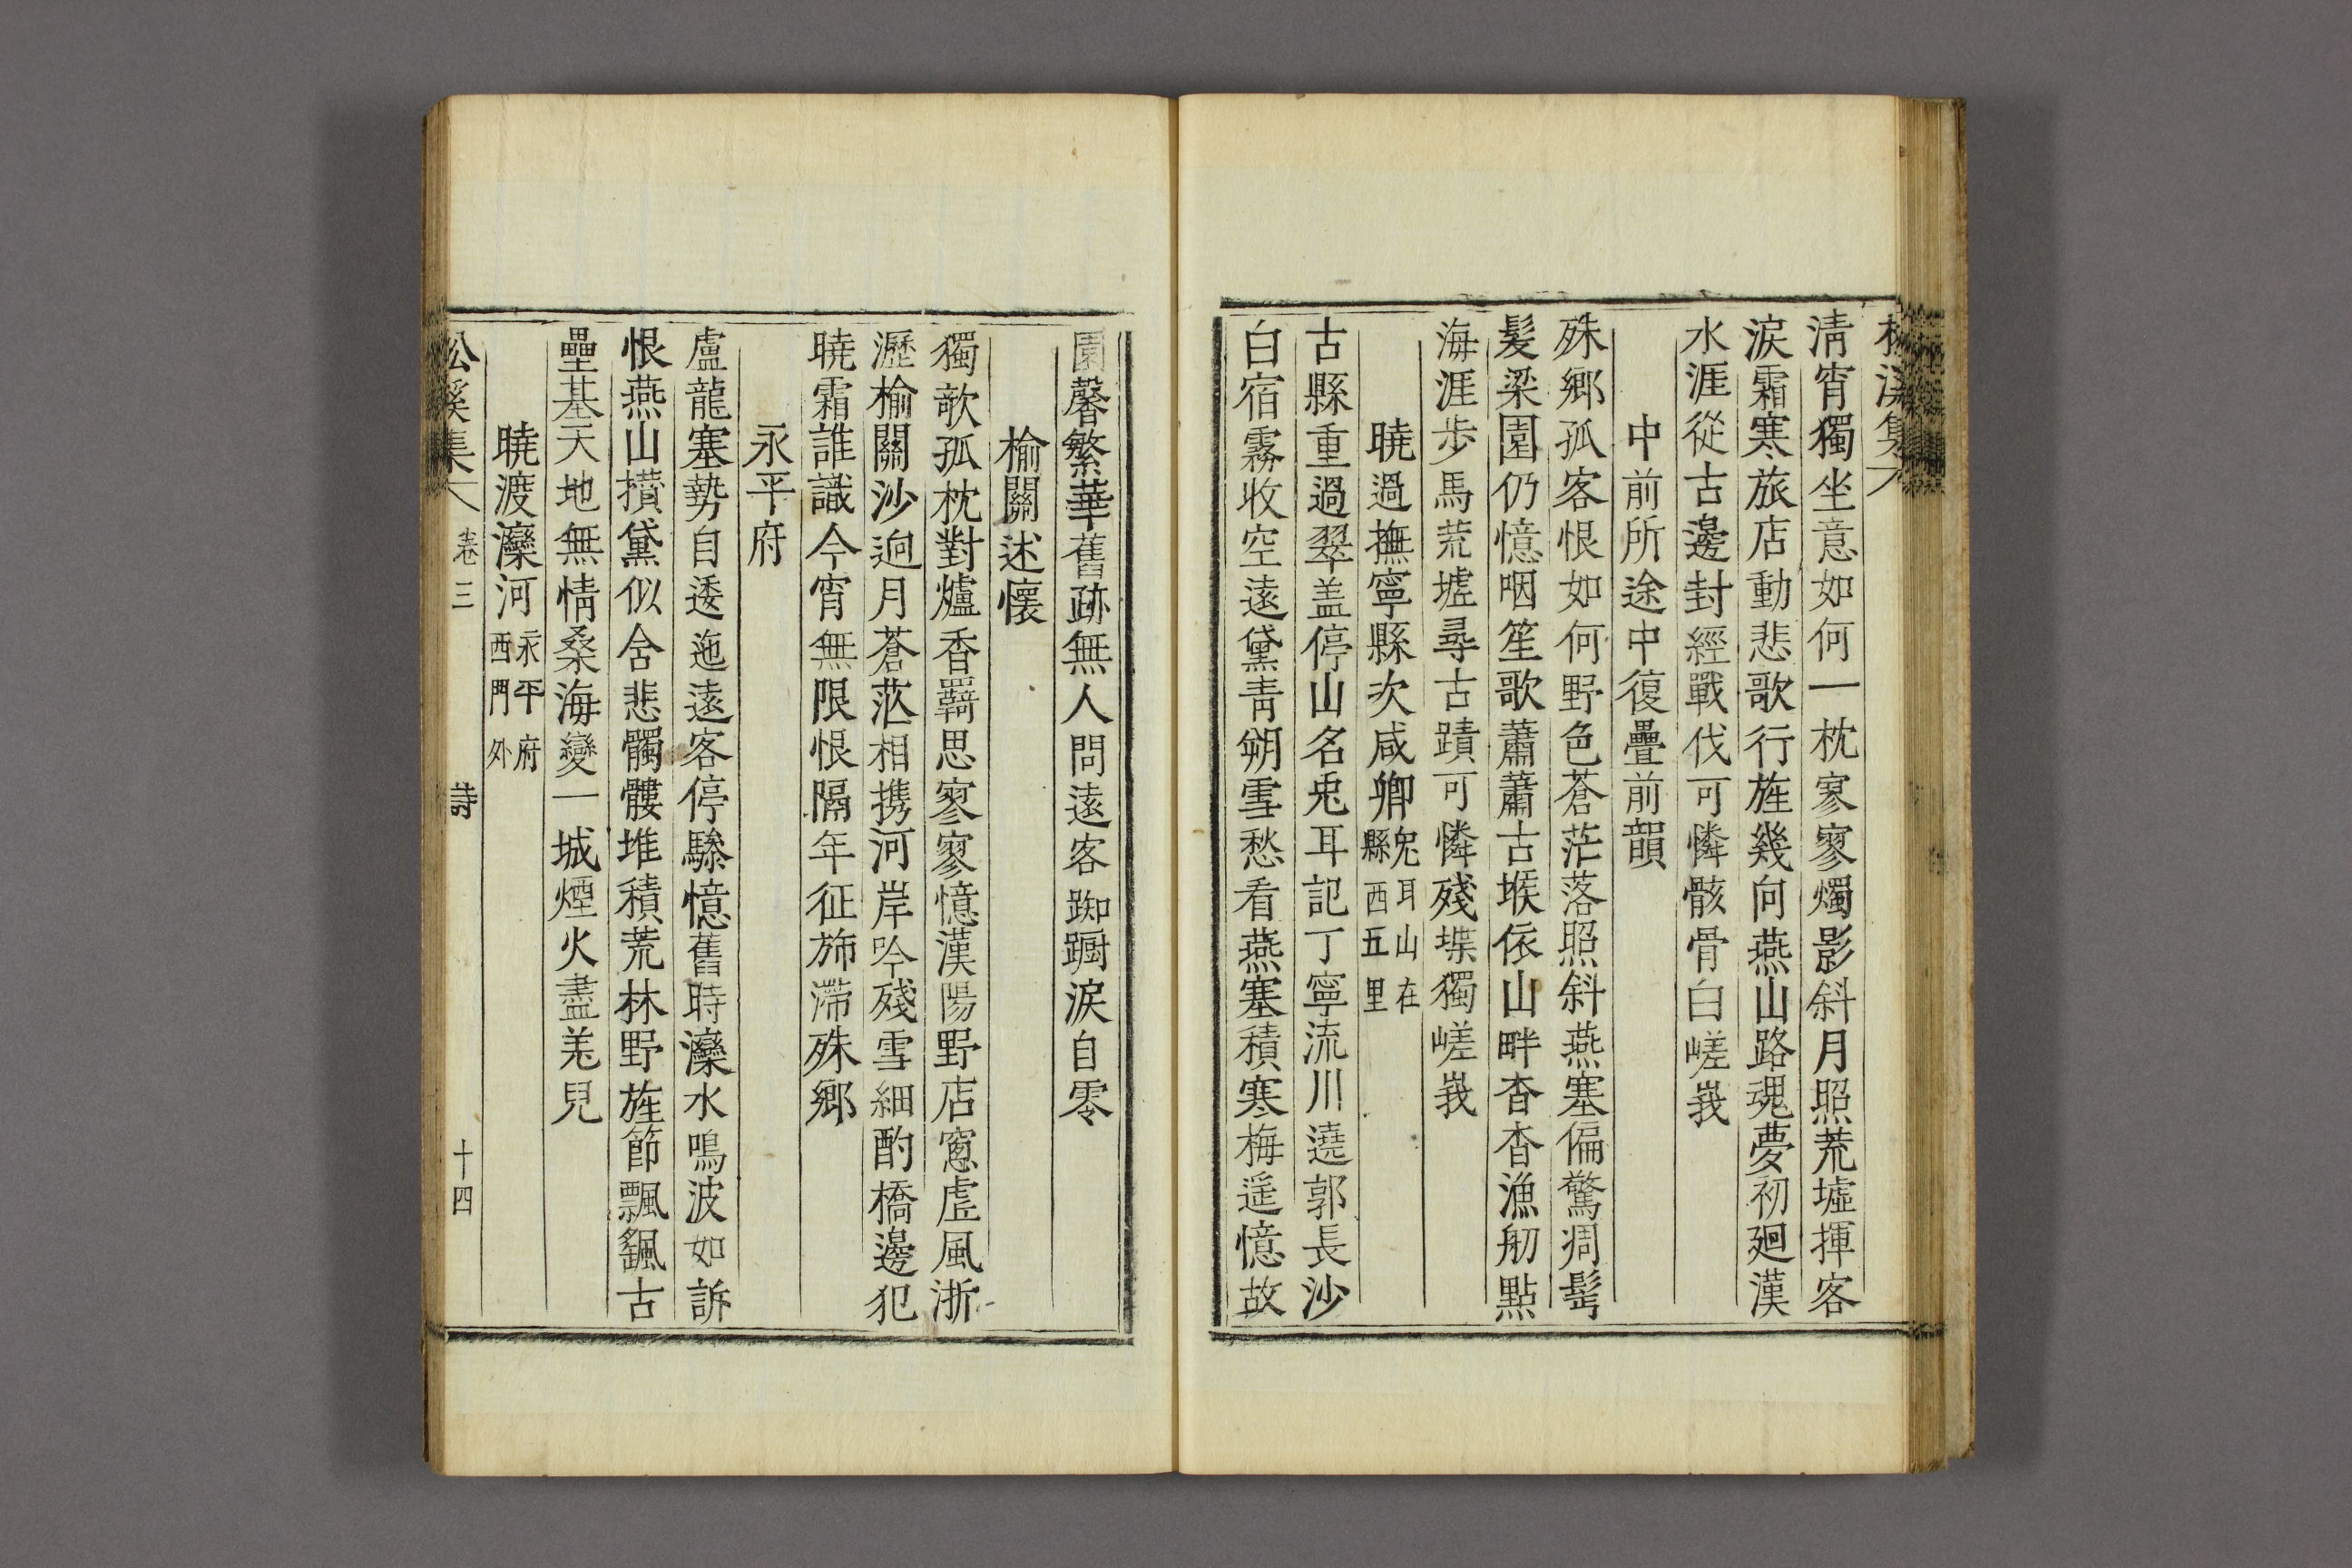 松溪集
清宵獨坐意如何一枕寥寥燭影斜月照荒墟揮客
淚霜寒旅店動悲歌行旌幾向燕山路魂夢初廻漢
水涯從古邊封經戰伐可憐骸骨白嵯峩
中前所途中復疊前韻
殊郷孤客恨如何野色蒼茫落照斜燕塞偏驚凋髩
髮梁園仍憶咽笙歌蕭蕭古堠依山畔杳杳漁舠點
海涯步馬荒墟尋古蹟可憐殘堞獨嵯峩
曉過撫寧縣次咸卿兎耳山在縣西五里
古縣重過翠盖停山名兎耳記丁寧流川遶郭長沙
白宿霧收空遠黛靑朔雪愁看燕塞積寒梅遥憶故
園馨繁華舊跡無人問遠客踟躕淚自零
榆關述懷
獨欹孤枕對爐香羇思寥寥憶漢陽野店窓虛風淅
瀝榆關沙逈月蒼茫相携河岸吟殘雪細酌橋邊犯
曉霜誰識今宵無限恨隔年征斾滯殊郷
永平府
盧龍塞勢自逶迤遠客停驂憶舊時灤水鳴波如訴
恨燕山攅黛似含悲髑髏堆積荒林野旌節飄颻古
壘基天地無情桑海變一城煙火盡羌兒
曉渡灤河永平府西門外
松溪集 卷三 詩 十四